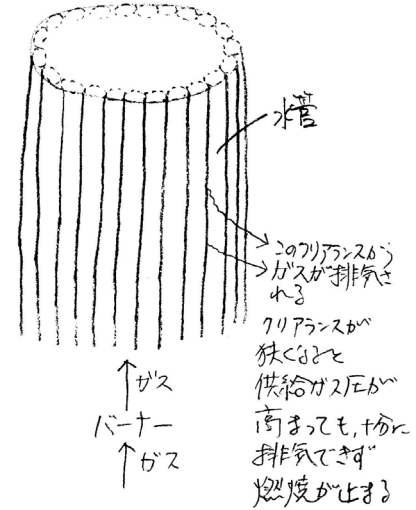 水管
このクリアランスから
ガスが排気さ
れる
クリアランスが
狭くなると
供給ガス圧が
高まっても、十分に
排気できず
燃焼が止まる
ガス
バーナー
ガス